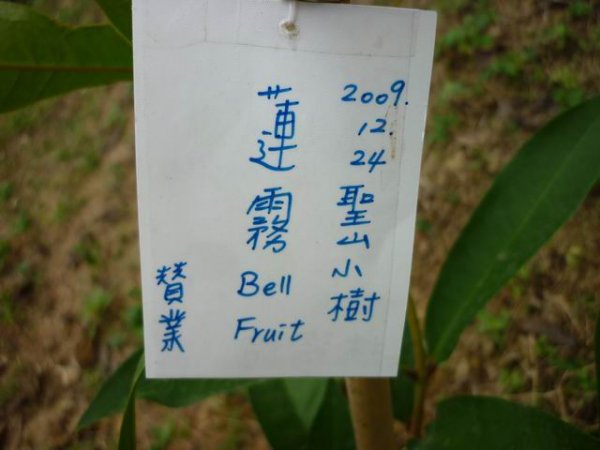 2009.
12.
24
聖山小樹
蓮霧
Bell
Fruit
賛業